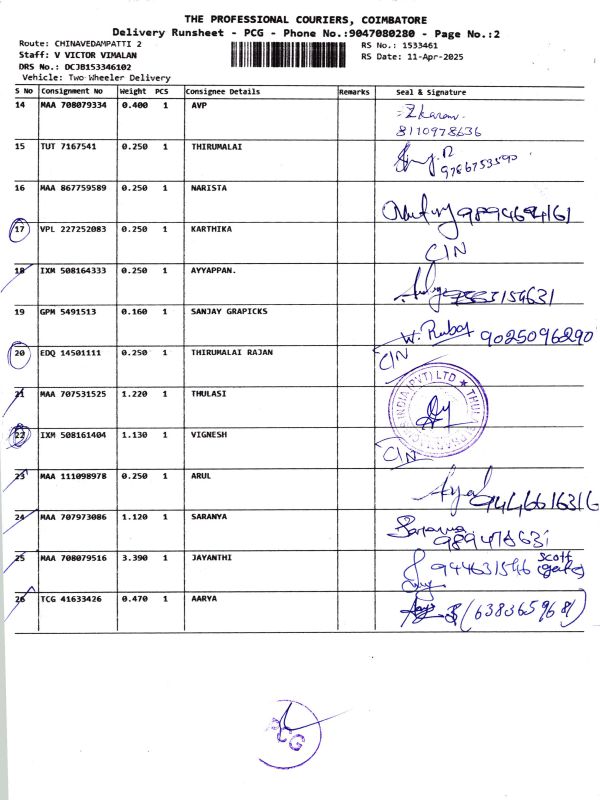 THE PROFESSIONAL COURIERS, COIMBATORE
Delivery Runsheet - PCG - Phone No.:9047080280 - Page No.:2
Route: CHINAVEDAMPATTI 2
Staff: V VICTOR VIMALAN
DRS No.: DCJB153346102
Vehicle: Two Wheeler Delivery
RS No.: 1533461
RS Date: 11-Apr-2025
S No Consignment No Weight PCS Consignee Details Remarks Seal & Signature
14 MAA 708079334 0.400 1 AVP
8110978636
15 TUT 7167541 0.250 1 THIRUMALAI
9786753590
16 MAA 867759589 0.250 1 NARISTA
9894694161
17 VPL 227252083 0.250 1 KARTHIKA
CIN
18 IXM 508164333 0.250 1 AYYAPPAN.
19 GPM 5491513 0.160 1 SANJAY GRAPICKS
9025096290
20 EDQ 14501111 0.250 1 THIRUMALAI RAJAN
CIN
21 MAA 707531525 1.220 1 THULASI
INDIA (PVT) LTD ★
22 IXM 508161404 1.130 1 VIGNESH
CIN
23 MAA 111098978 0.250 1 ARUL
9446616316
24 MAA 707973086 1.120 1 SARANYA
Saranya
25 MAA 708079516 3.390 1 JAYANTHI
944631546 Scott
26 TCG 41633426 0.470 1 AARYA
(6383659681)
PCG